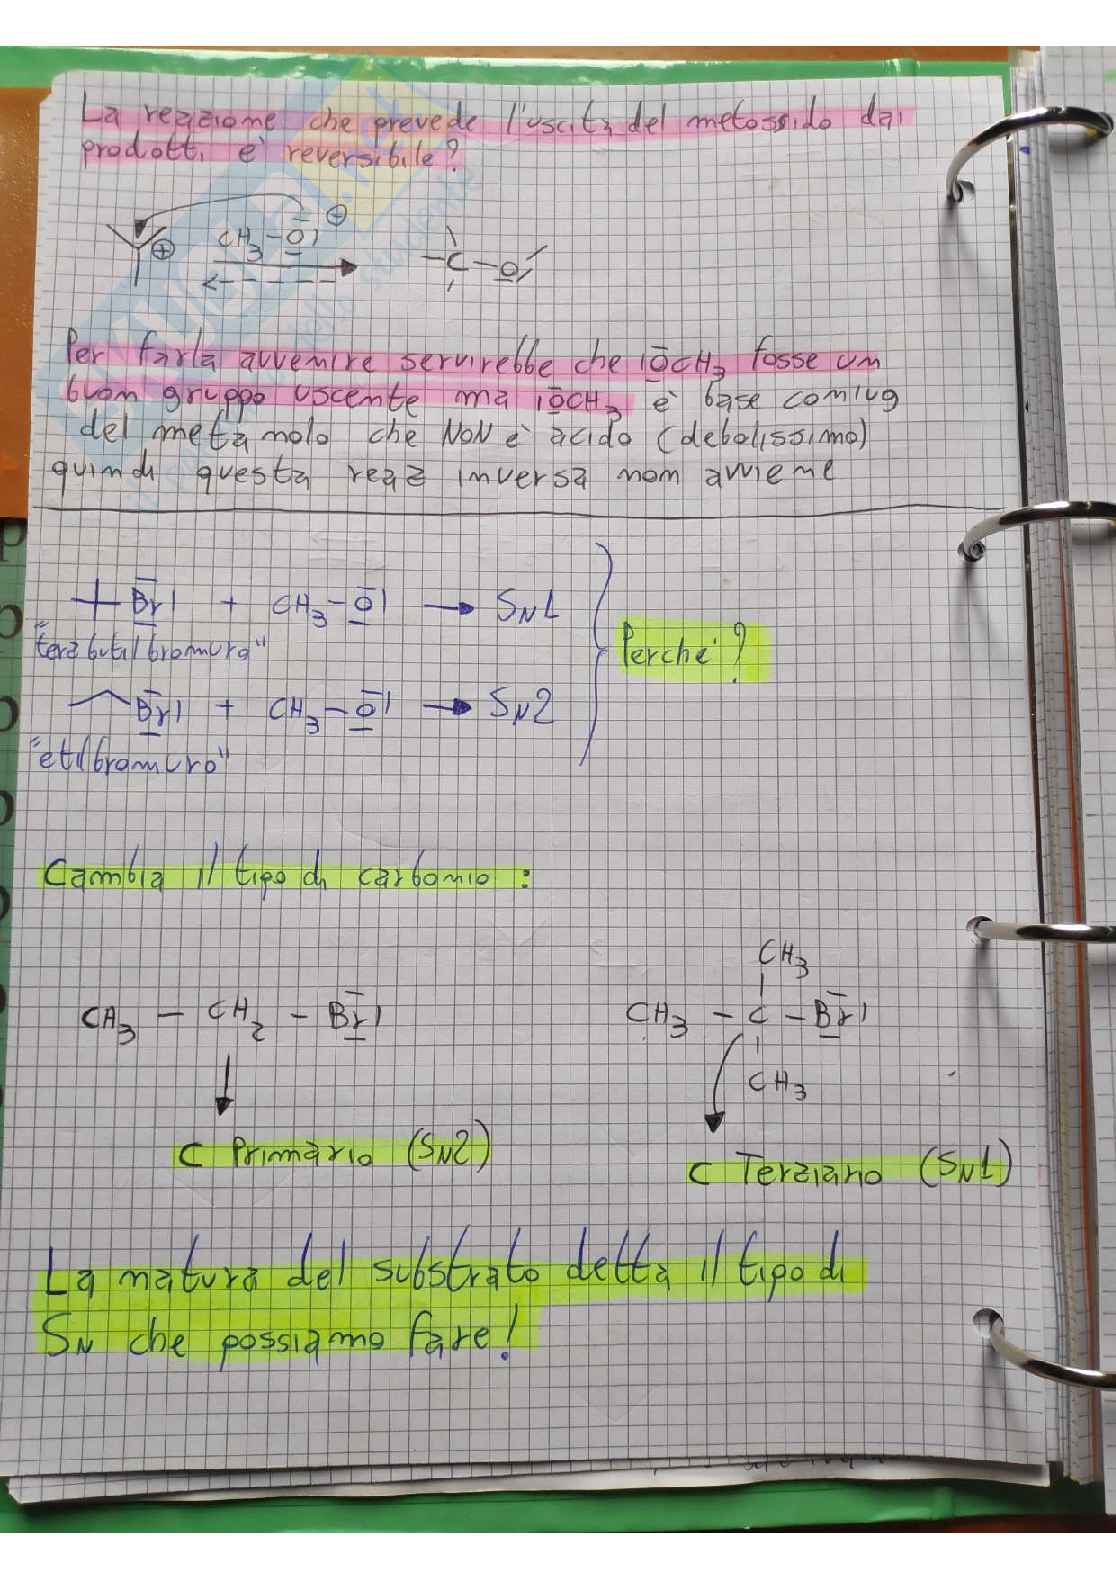 La reazione che prevede l'uscita del metossido dai
prodotti è reversibile?
⊕ CH3-O| ⊕
-C-O
Per farla avvenire servirebbe che |OCH3 fosse un
buon gruppo uscente ma |OCH3 è base coniug
del metanolo che NON è acido (debolissimo)
quindi questa reaz inversa non avviene
Br| + CH3-O| → SN1
"terz butil bromuro"
Perché?
Br| + CH3-O| → SN2
"etilbromuro"
Cambia il tipo di carbonio:
CH3
CH3 - CH2 - Br|
CH3 - C - Br|
CH3
C Primario (SN2)
C Terziario (SN1)
La natura del substrato detta il tipo di
SN che possiamo fare!